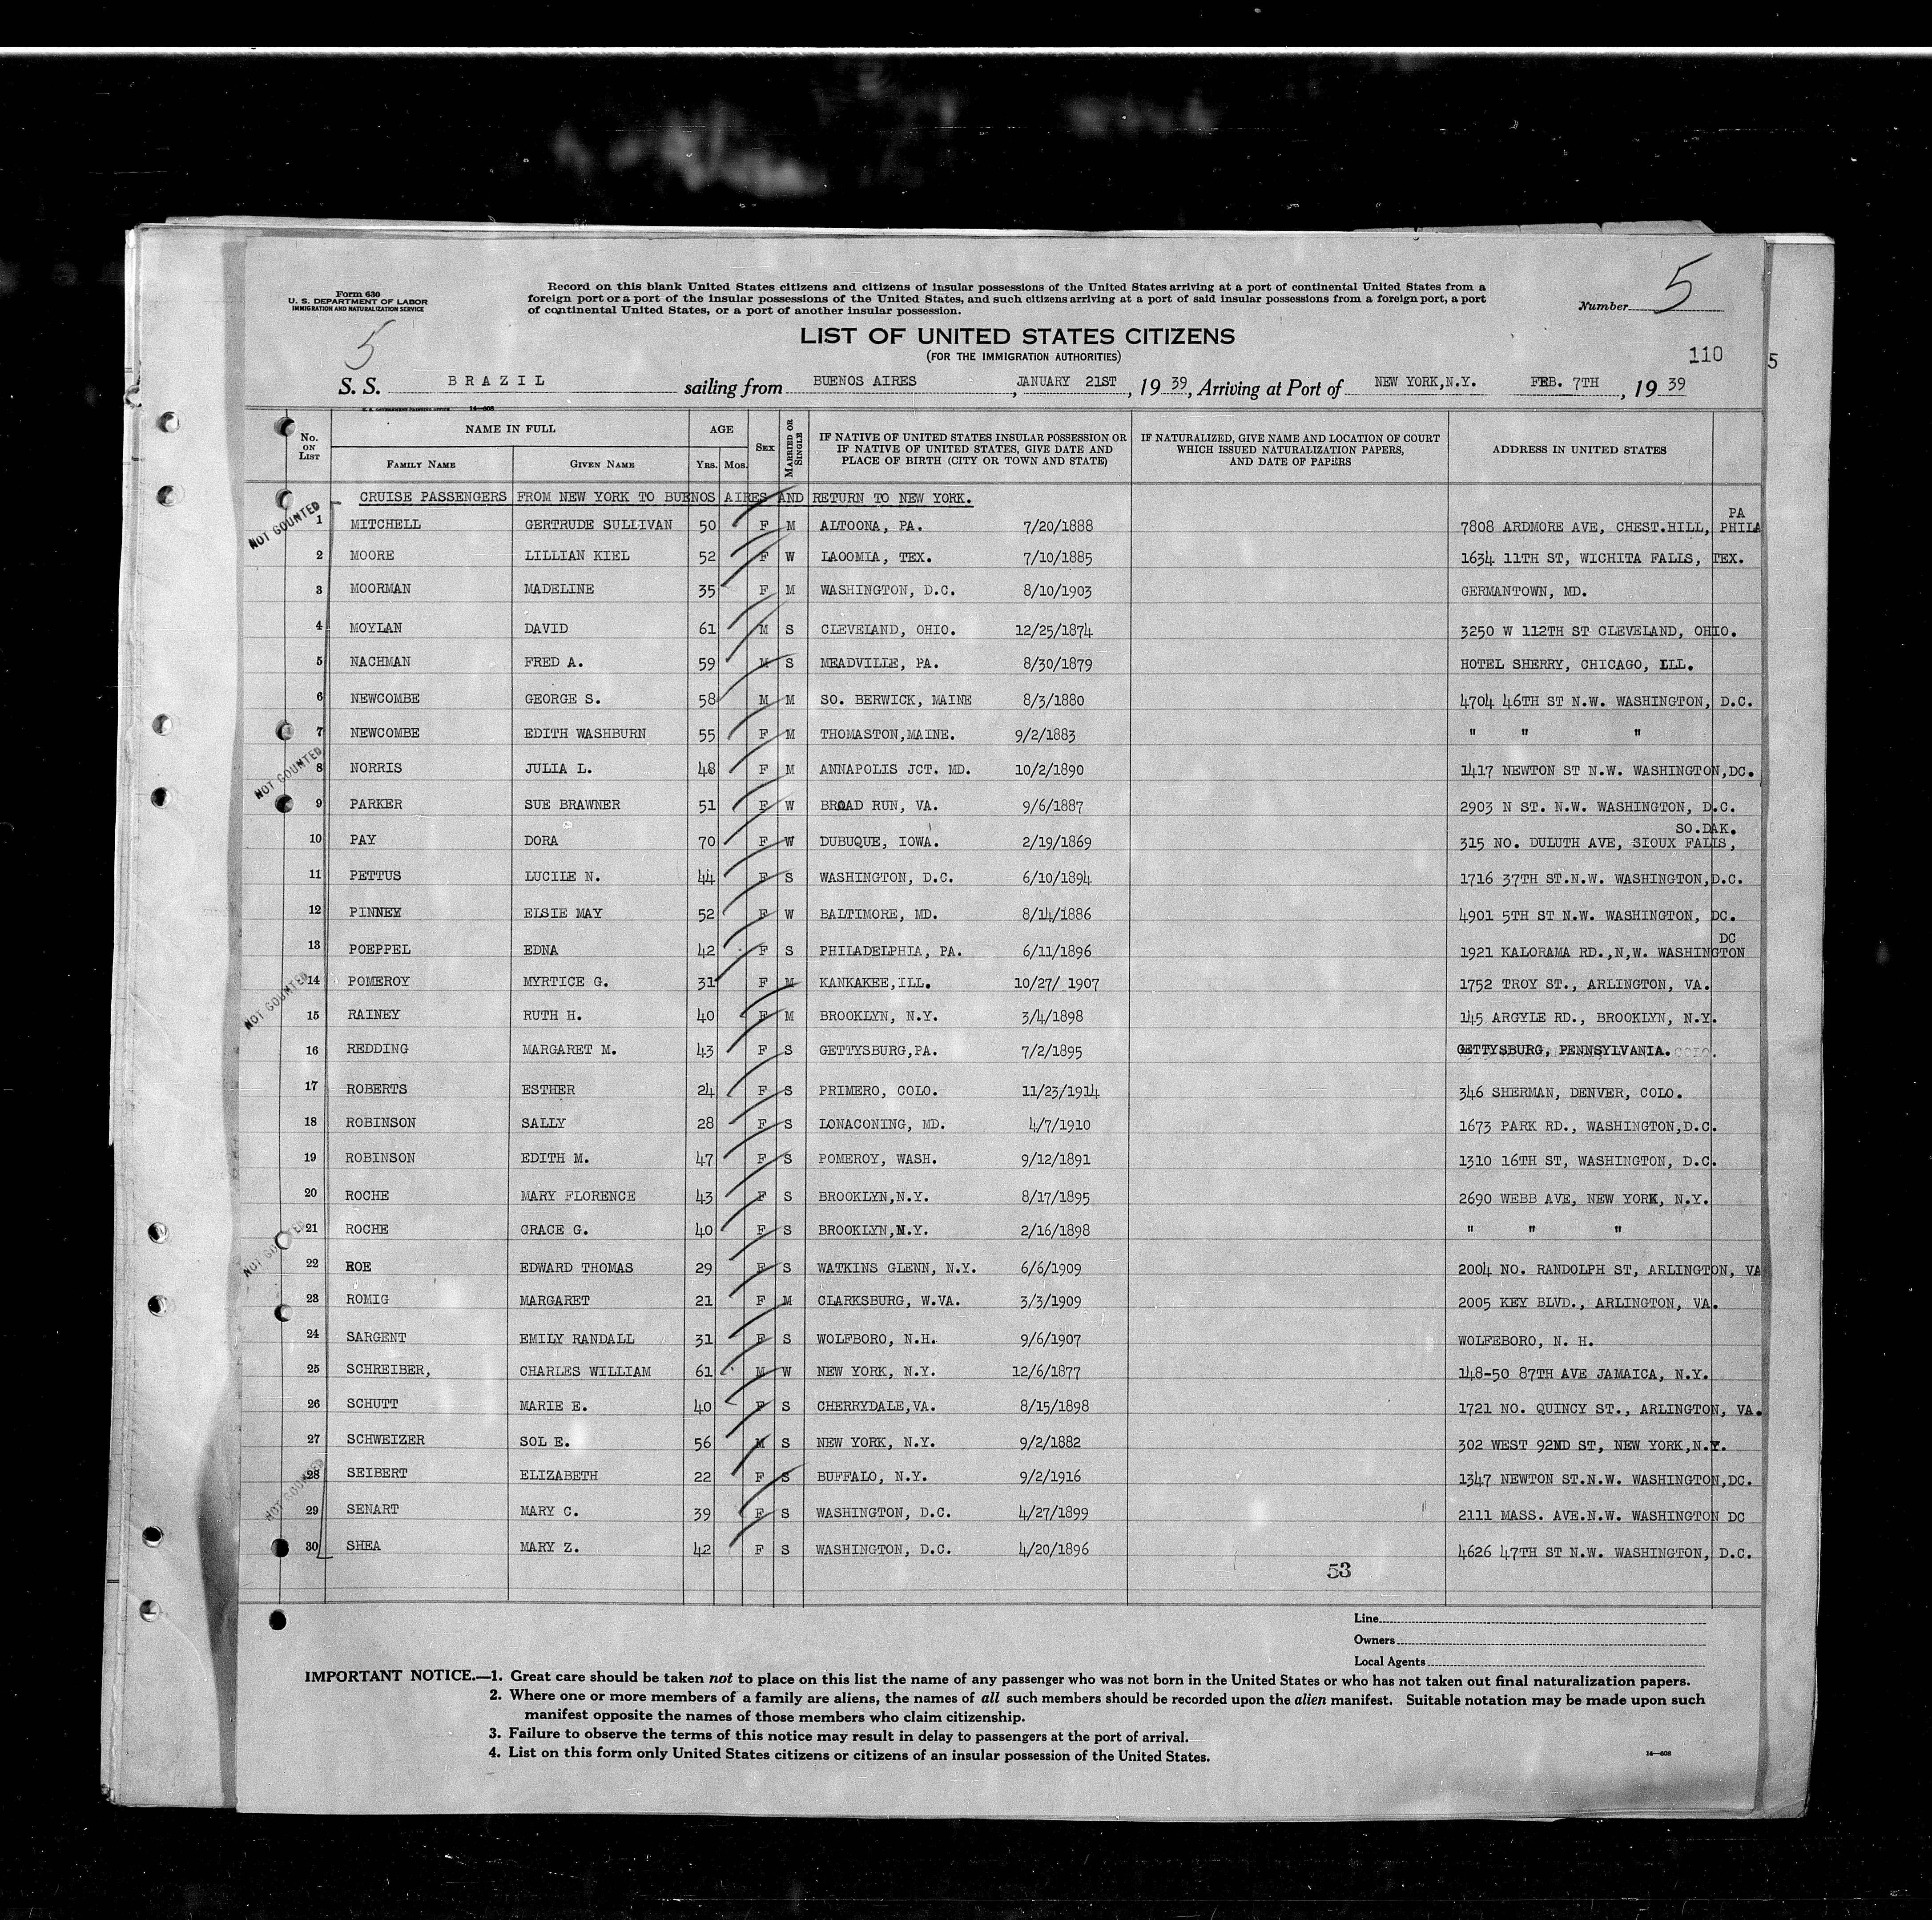 Form 630
U. S. DEPARTMENT OF LABOR
IMMIGRATION AND NATURALIZATION SERVICE
Record on this blank United States citizens and citizens of insular possessions of the United States arriving at a port of continental United States from a
foreign port or a port of the insular possessions of the United States, and such citizens arriving at a port of said insular possessions from a foreign port, a port
of continental United States, or a port of another insular possession.
Number 5
5
LIST OF UNITED STATES CITIZENS
(FOR THE IMMIGRATION AUTHORITIES)
110
5
S. S. BRAZIL sailing from BUENOS AIRES, JANUARY 21ST, 1939, Arriving at Port of NEW YORK,N.Y. FEB. 7TH, 1939
U. S. GOVERNMENT PRINTING OFFICE 14—608
No. ON LIST NAME IN FULL FAMILY NAME GIVEN NAME AGE YRS. MOS. SEX MARRIED OR SINGLE IF NATIVE OF UNITED STATES INSULAR POSSESSION OR IF NATIVE OF UNITED STATES, GIVE DATE AND PLACE OF BIRTH (CITY OR TOWN AND STATE) IF NATURALIZED, GIVE NAME AND LOCATION OF COURT WHICH ISSUED NATURALIZATION PAPERS, AND DATE OF PAPERS ADDRESS IN UNITED STATES
CRUISE PASSENGERS FROM NEW YORK TO BUENOS AIRES AND RETURN TO NEW YORK.
NOT COUNTED
1 MITCHELL GERTRUDE SULLIVAN 50 F M ALTOONA, PA. 7/20/1888 7808 ARDMORE AVE, CHEST.HILL, PHILA PA
2 MOORE LILLIAN KIEL 52 F W LAOOMIA, TEX. 7/10/1885 1634 11TH ST, WICHITA FALLS, TEX.
3 MOORMAN MADELINE 35 F M WASHINGTON, D.C. 8/10/1903 GERMANTOWN, MD.
4 MOYLAN DAVID 61 M S CLEVELAND, OHIO. 12/25/1874 3250 W 112TH ST CLEVELAND, OHIO.
5 NACHMAN FRED A. 59 M S MEADVILLE, PA. 8/30/1879 HOTEL SHERRY, CHICAGO, ILL.
6 NEWCOMBE GEORGE S. 58 M M SO. BERWICK, MAINE 8/3/1880 4704 46TH ST N.W. WASHINGTON, D.C.
7 NEWCOMBE EDITH WASHBURN 55 F M THOMASTON,MAINE. 9/2/1883 " " "
NOT COUNTED
8 NORRIS JULIA L. 48 F M ANNAPOLIS JCT. MD. 10/2/1890 1417 NEWTON ST N.W. WASHINGTON,DC.
9 PARKER SUE BRAWNER 51 F W BROAD RUN, VA. 9/6/1887 2903 N ST. N.W. WASHINGTON, D.C.
10 PAY DORA 70 F W DUBUQUE, IOWA. 2/19/1869 315 NO. DULUTH AVE, SIOUX FALLS, SO.DAK.
11 PETTUS LUCILE N. 44 F S WASHINGTON, D.C. 6/10/1894 1716 37TH ST.N.W. WASHINGTON,D.C.
12 PINNEY ELSIE MAY 52 F W BALTIMORE, MD. 8/14/1886 4901 5TH ST N.W. WASHINGTON, DC.
13 POEPPEL EDNA 42 F S PHILADELPHIA, PA. 6/11/1896 1921 KALORAMA RD.,N,W. WASHINGTON DC
NOT COUNTED
14 POMEROY MYRTICE G. 31 F M KANKAKEE,ILL. 10/27/ 1907 1752 TROY ST., ARLINGTON, VA.
15 RAINEY RUTH H. 40 F M BROOKLYN, N.Y. 3/4/1898 145 ARGYLE RD., BROOKLYN, N.Y.
16 REDDING MARGARET M. 43 F S GETTYSBURG,PA. 7/2/1895 GETTYSBURG, PENNSYLVANIA.
17 ROBERTS ESTHER 24 F S PRIMERO, COLO. 11/23/1914 346 SHERMAN, DENVER, COLO.
18 ROBINSON SALLY 28 F S LONACONING, MD. 4/7/1910 1673 PARK RD., WASHINGTON,D.C.
19 ROBINSON EDITH M. 47 F S POMEROY, WASH. 9/12/1891 1310 16TH ST, WASHINGTON, D.C.
20 ROCHE MARY FLORENCE 43 F S BROOKLYN,N.Y. 8/17/1895 2690 WEBB AVE, NEW YORK, N.Y.
NOT COUNTED
21 ROCHE GRACE G. 40 F S BROOKLYN,N.Y. 2/16/1898 " " "
22 ROE EDWARD THOMAS 29 F S WATKINS GLENN, N.Y. 6/6/1909 2004 NO. RANDOLPH ST, ARLINGTON, VA
23 ROMIG MARGARET 21 F M CLARKSBURG, W.VA. 3/3/1909 2005 KEY BLVD., ARLINGTON, VA.
24 SARGENT EMILY RANDALL 31 F S WOLFBORO, N.H. 9/6/1907 WOLFEBORO, N. H.
25 SCHREIBER, CHARLES WILLIAM 61 M W NEW YORK, N.Y. 12/6/1877 148-50 87TH AVE JAMAICA, N.Y.
26 SCHUTT MARIE E. 40 F S CHERRYDALE,VA. 8/15/1898 1721 NO. QUINCY ST., ARLINGTON, VA.
27 SCHWEIZER SOL E. 56 M S NEW YORK, N.Y. 9/2/1882 302 WEST 92ND ST, NEW YORK,N.Y.
NOT COUNTED
28 SEIBERT ELIZABETH 22 F S BUFFALO, N.Y. 9/2/1916 1347 NEWTON ST.N.W. WASHINGTON,DC.
29 SENART MARY C. 39 F S WASHINGTON, D.C. 4/27/1899 2111 MASS. AVE.N.W. WASHINGTON DC
30 SHEA MARY Z. 42 F S WASHINGTON, D.C. 4/20/1896 4626 47TH ST N.W. WASHINGTON, D.C.
53
Line
Owners
Local Agents
IMPORTANT NOTICE.—1. Great care should be taken not to place on this list the name of any passenger who was not born in the United States or who has not taken out final naturalization papers.
2. Where one or more members of a family are aliens, the names of all such members should be recorded upon the alien manifest. Suitable notation may be made upon such
manifest opposite the names of those members who claim citizenship.
3. Failure to observe the terms of this notice may result in delay to passengers at the port of arrival.
4. List on this form only United States citizens or citizens of an insular possession of the United States.
14—608